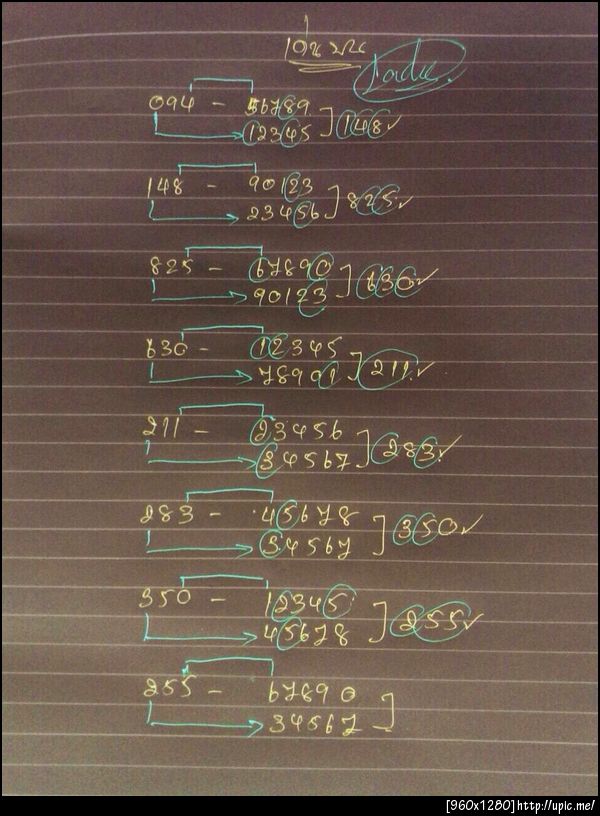 094 - 56789
12345 ] 148 ✓
148 - 90123
23456 ] 825 ✓
825 - 67890
90123 ] 630 ✓
630 - 12345
78901 ] 211 ✓
211 - 23456
34567 ] 283 ✓
283 - 45678
34567 ] 350 ✓
350 - 12345
45678 ] 255 ✓
255 - 67890
34567 ]
[960x1280] http://upic.me/